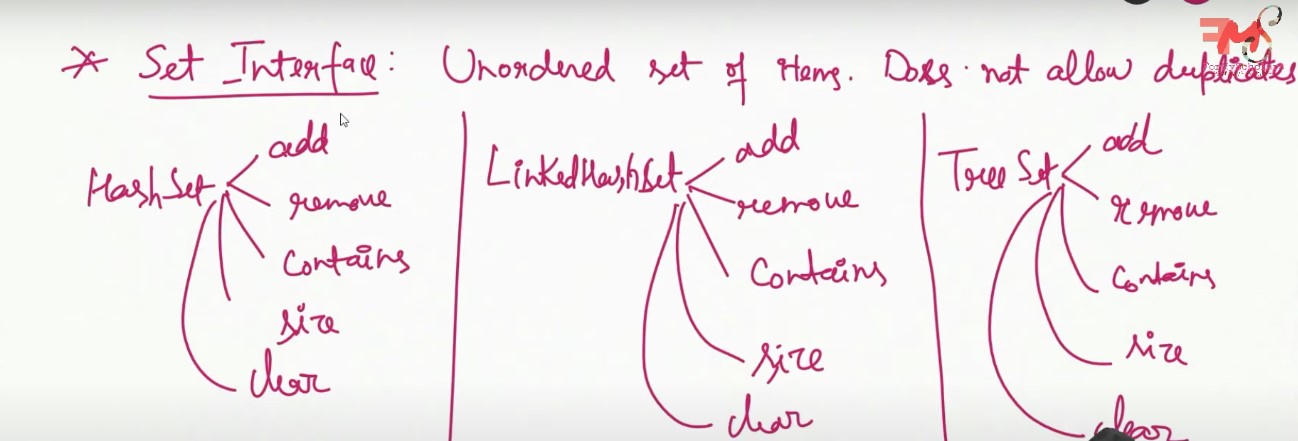 * Set Interface: Unordered set of items. Does not allow duplicates
HashSet
add
remove
Contains
size
clear
LinkedHashSet
add
remove
Contains
size
clear
Tree Set
add
remove
Contains
size
clear